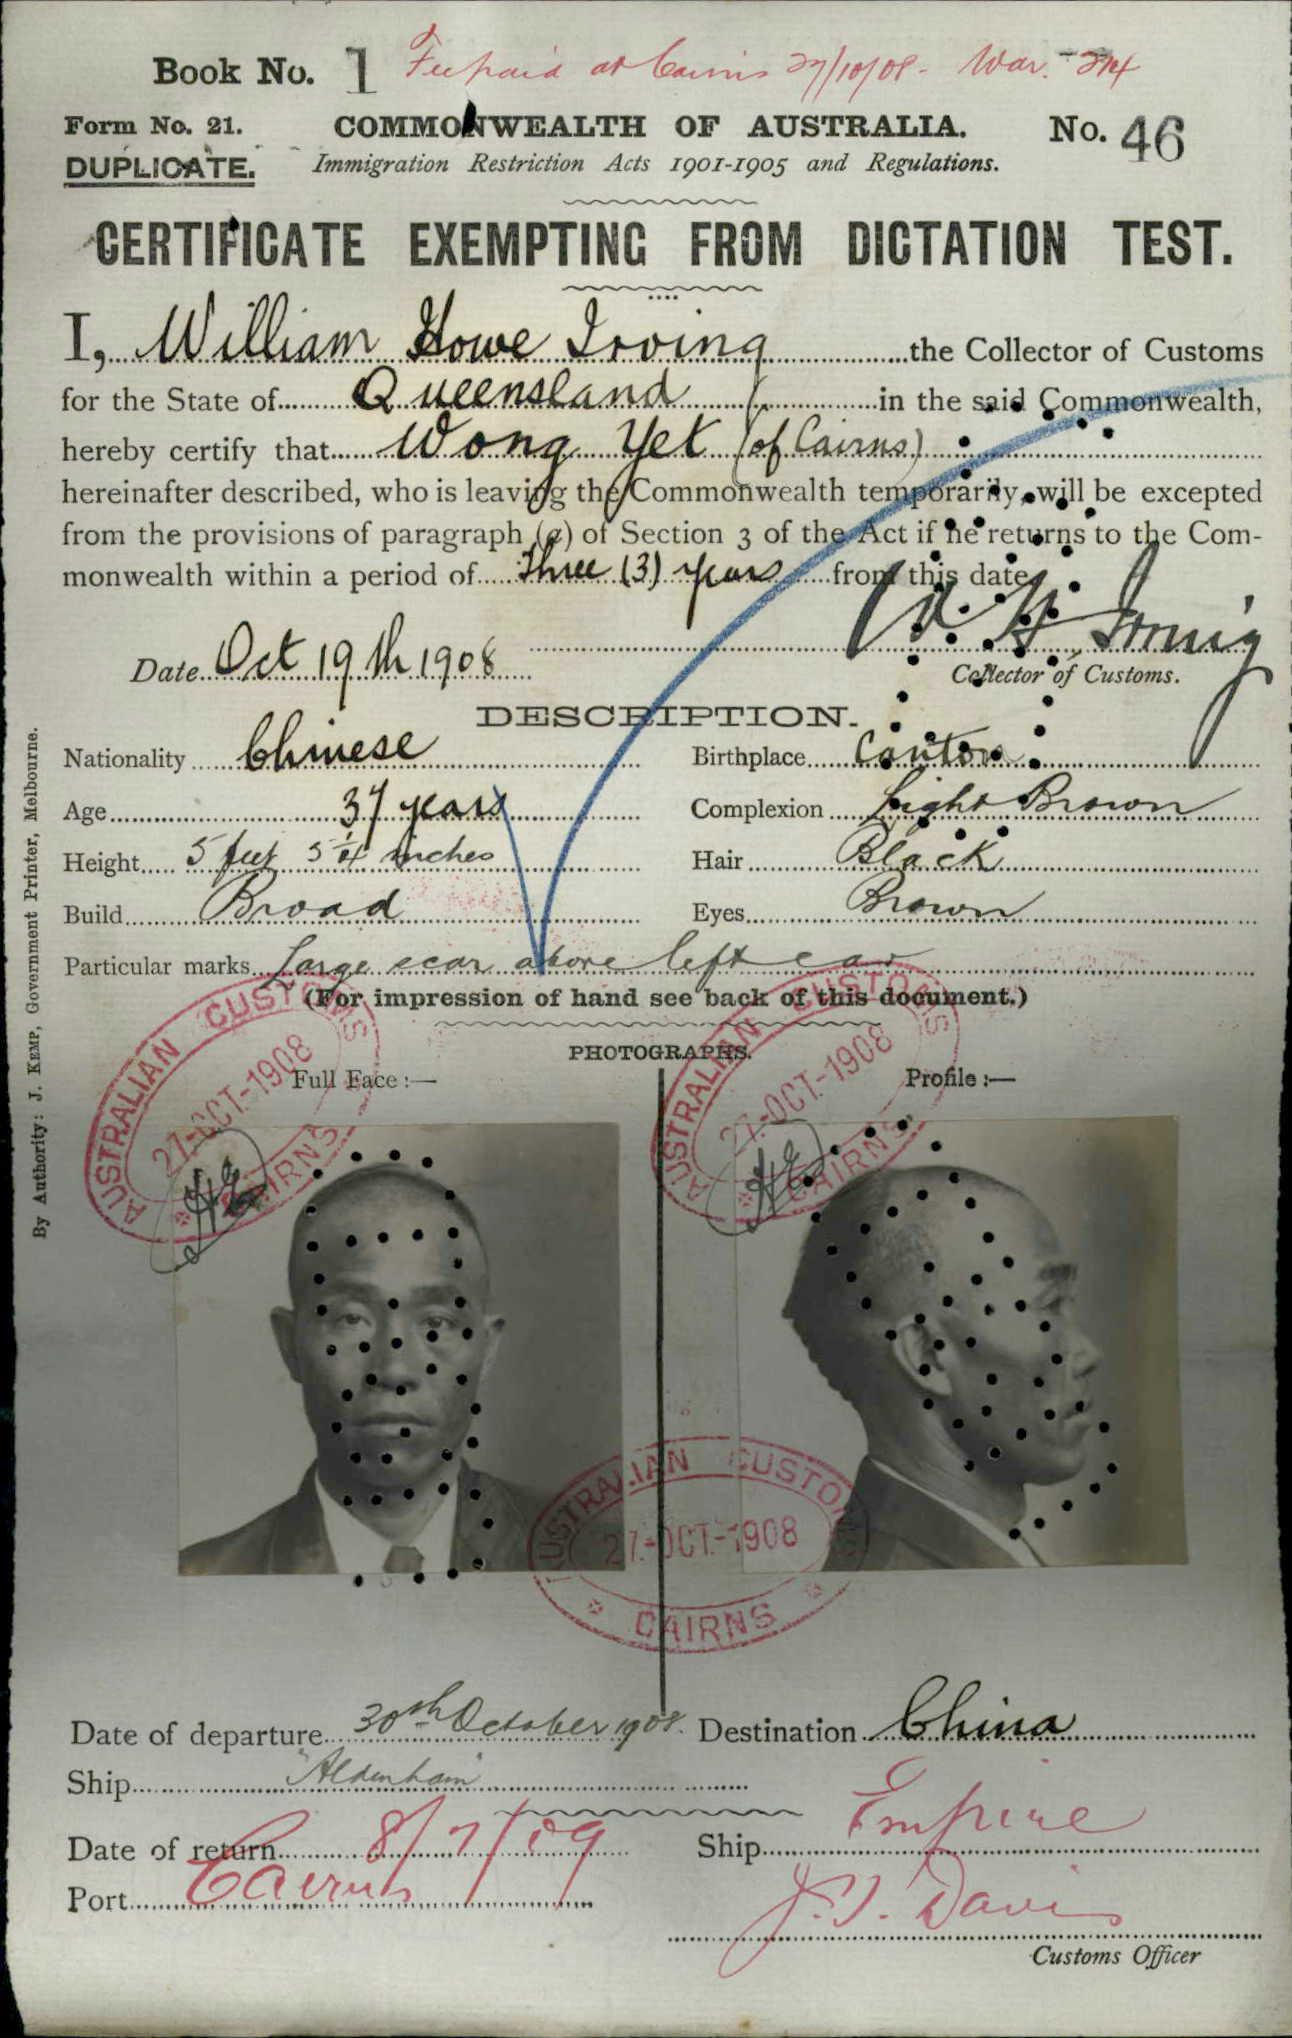 Book No. 1 Fee paid at Cairns 27/10/08 - War.
Form No. 21. COMMONWEALTH OF AUSTRALIA. No. 46
DUPLICATE. Immigration Restriction Acts 1901-1905 and Regulations.
CERTIFICATE EXEMPTING FROM DICTATION TEST.
I, William Howe Irving the Collector of Customs
for the State of Queensland in the said Commonwealth,
hereby certify that Wong Yet (of Cairns)
hereinafter described, who is leaving the Commonwealth temporarily, will be excepted
from the provisions of paragraph (a) of Section 3 of the Act if he returns to the Com-
monwealth within a period of Three (3) years from this date
W H Irving
Date Oct 19th 1908
Collector of Customs.
DESCRIPTION.
Nationality Chinese Birthplace Canton
Age 37 years Complexion Light Brown
Height 5 feet 5 1/4 inches Hair Black
Build Broad Eyes Brown
Particular marks Large scar above left ear
(For impression of hand see back of this document.)
PHOTOGRAPHS.
Full Face :— Profile :—
AUSTRALIAN CUSTOMS
27-OCT-1908
CAIRNS
AUSTRALIAN CUSTOMS
27-OCT-1908
CAIRNS
AUSTRALIAN CUSTOMS
27-OCT-1908
CAIRNS
Date of departure 30th October 1908. Destination China
Ship "Aldenham"
Date of return 8/7/09 Ship Empire
Port Cairns J. J. Davis
Customs Officer
By Authority: J. KEMP, Government Printer, Melbourne.